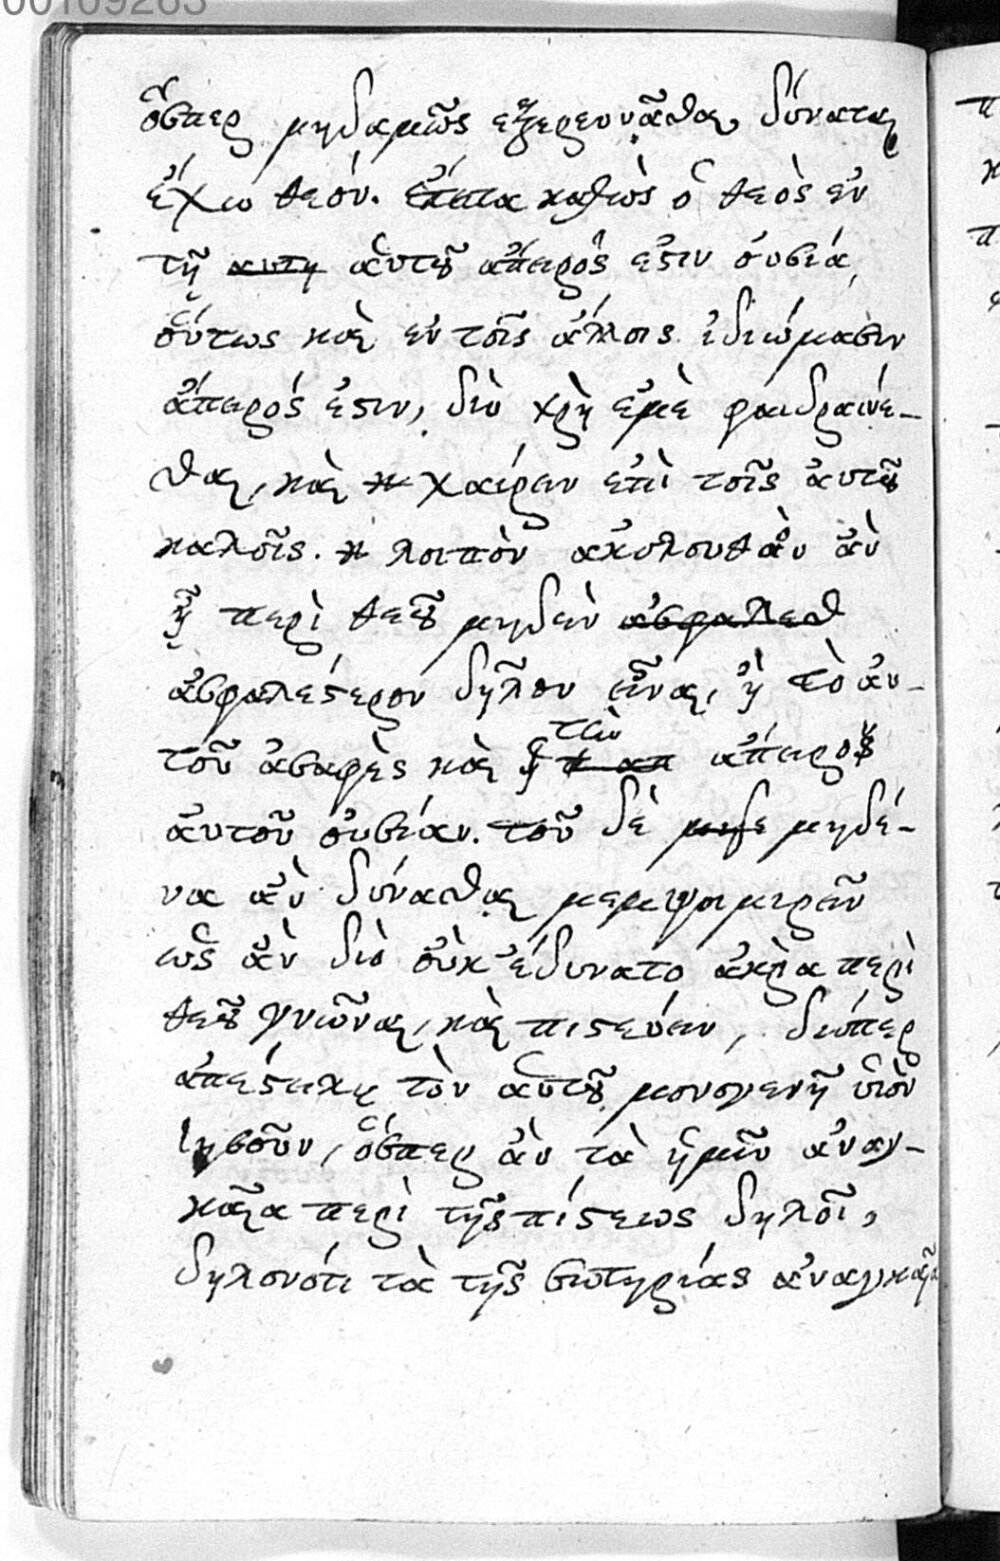 00109263
ὅσπερ μηδαμῶς ἐξερευνᾶσθαι δύναται
ἔχω θεόν. ἔπειτα καθὼς ὁ θεὸς ἐν
τῇ αυτη ἁυτοῦ ἄπειρός ἐστιν ὀυσίᾳ,
ὅυτως καὶ ἐν τοῖς ἄλλοις ἰδιώμασιν
ἄπειρός ἐστιν, διὸ χρὴ ἐμὲ φαιδραίνε-
σθαι, καὶ χαίρειν ἐπὶ τοῖς ἀυτοῦ
καλοῖς. λοιπὸν ἀκολουθ ἂν
ᾖ περὶ θεοῦ μηδὲν ἀσφαλεσ
ἀσφαλέστερον δῆλον εἶναι, ἢ τὸ ἀυ-
τοῦ ἀσαφὲς καὶ τὼ ἄπειρον
ἀυτοῦ ὀυσίαν. τοῦ δὲ μηδέ-
να ἂν δύνασθαι μεμψιμοιρεῖν
ὡς ἂν διὸ ὀυκ ἐδύνατο περὶ
θεοῦ γνῶναι, καὶ πιστεύειν, διόπερ
ἀπέστειλε τὸν ἁυτοῦ μονογενῆ ὑιὸν
Ἰησοῦν, ὅσπερ ἂν τὰ ἡμῖν ἀναγ-
καῖα περὶ τῆς πίστεως δηλοῖ,
δηλονότι τὰ τῆς σωτηρίας ἀναγκαῖα